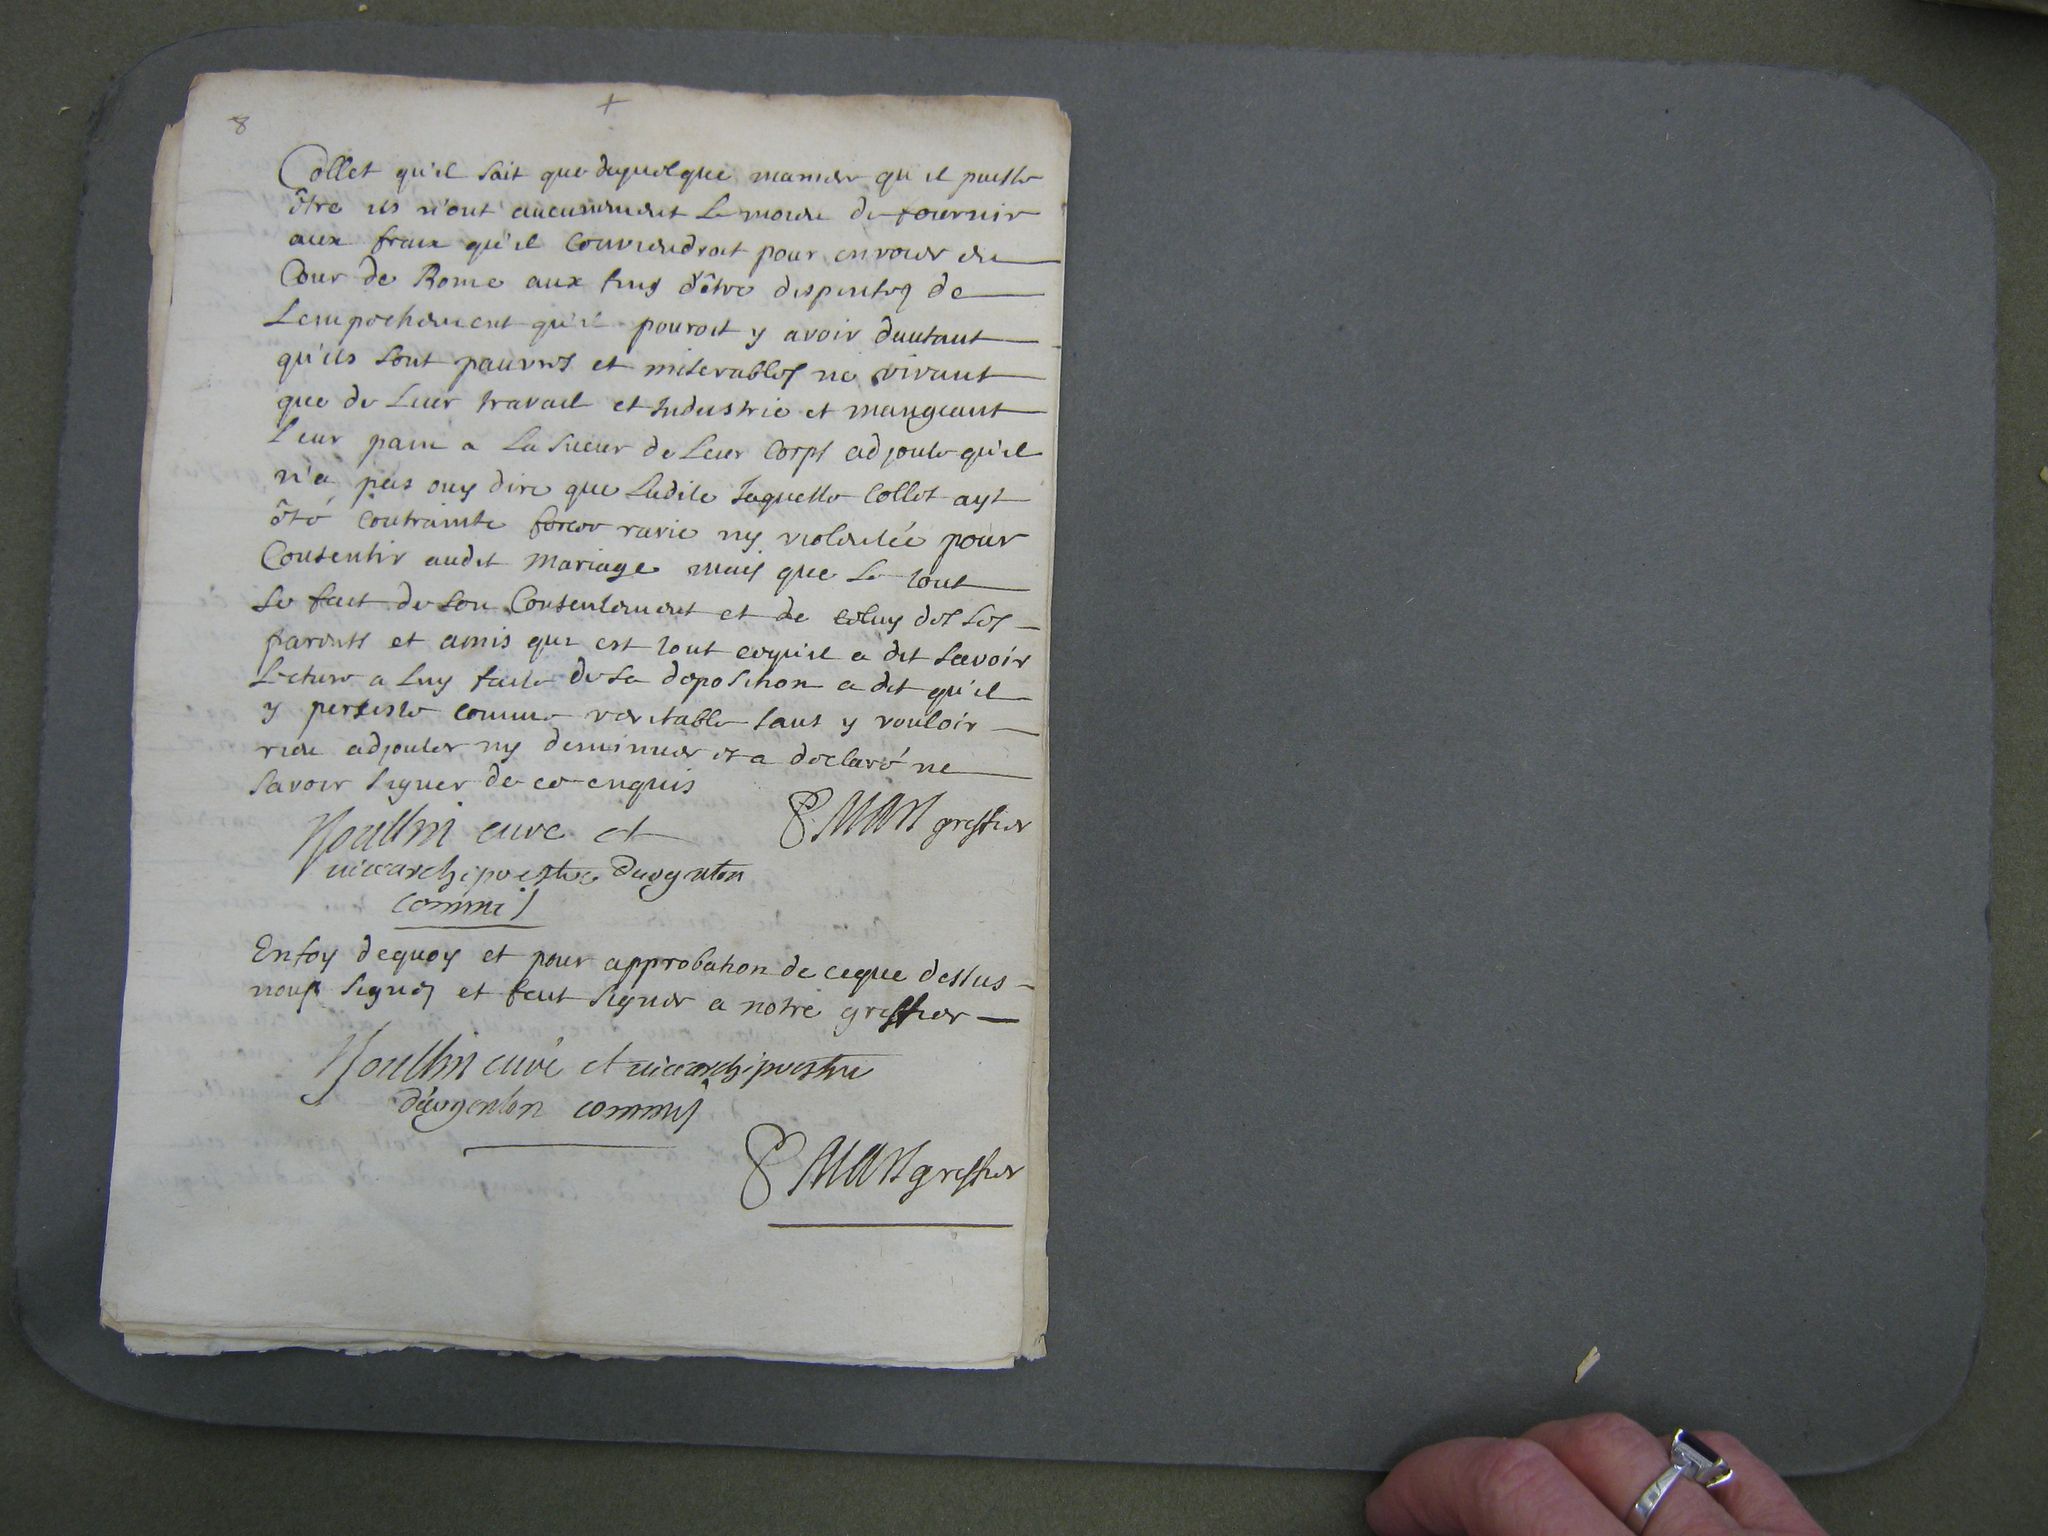 +
8
Collet qu'il sait que dequelque manier qu'il puisse
être ils n'ont aucunement le moien de fournir
aux fraix qu'il conviendroit pour envoier en
Cour de Rome aux fins d'être dispensés de
L'empechement qu'il pouroit y avoir dautant
qu'ils sont pauvres et miserables ne vivant
que de Leur travail et Industrie et mangeant
Leur pain a La sueur de Leur Corps adjoute qu'il
n'a pas ouy dire que Ladite Jaquette Collet ayt
été contrainte forcee ravie ny violentée pour
Consentir audit Mariage mais que Le tout
se fait de son Consentement et de celuy des ses
parents et amis qui est tout cequ'il a dit savoir
Lecture a Luy faite de sa deposition a dit qu'il
y persiste comme veritable sans y vouloir
rien adjouter ny deminuer et a declaré ne
savoir signer de ce enquis
curé et greffier
vicearchiprestre d'argenton
Commis
En foy dequoy et pour approbation de ceque dessus
nous signés et fait signer a notre greffier
curé et vicearchiprestre
d'argenton commis
greffier